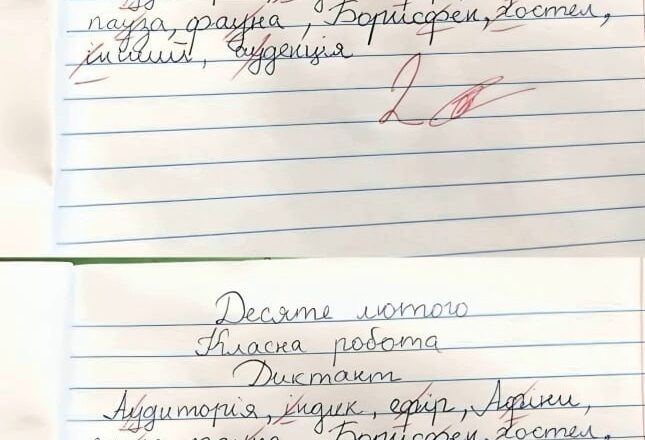 пауза, фауна, Борисфен, хостел,
інший, ауденція
2
Десяте лютого
Класна робота
Диктант
Аудиторія, індик, ефір, Афини,
Борисфен, хостел,